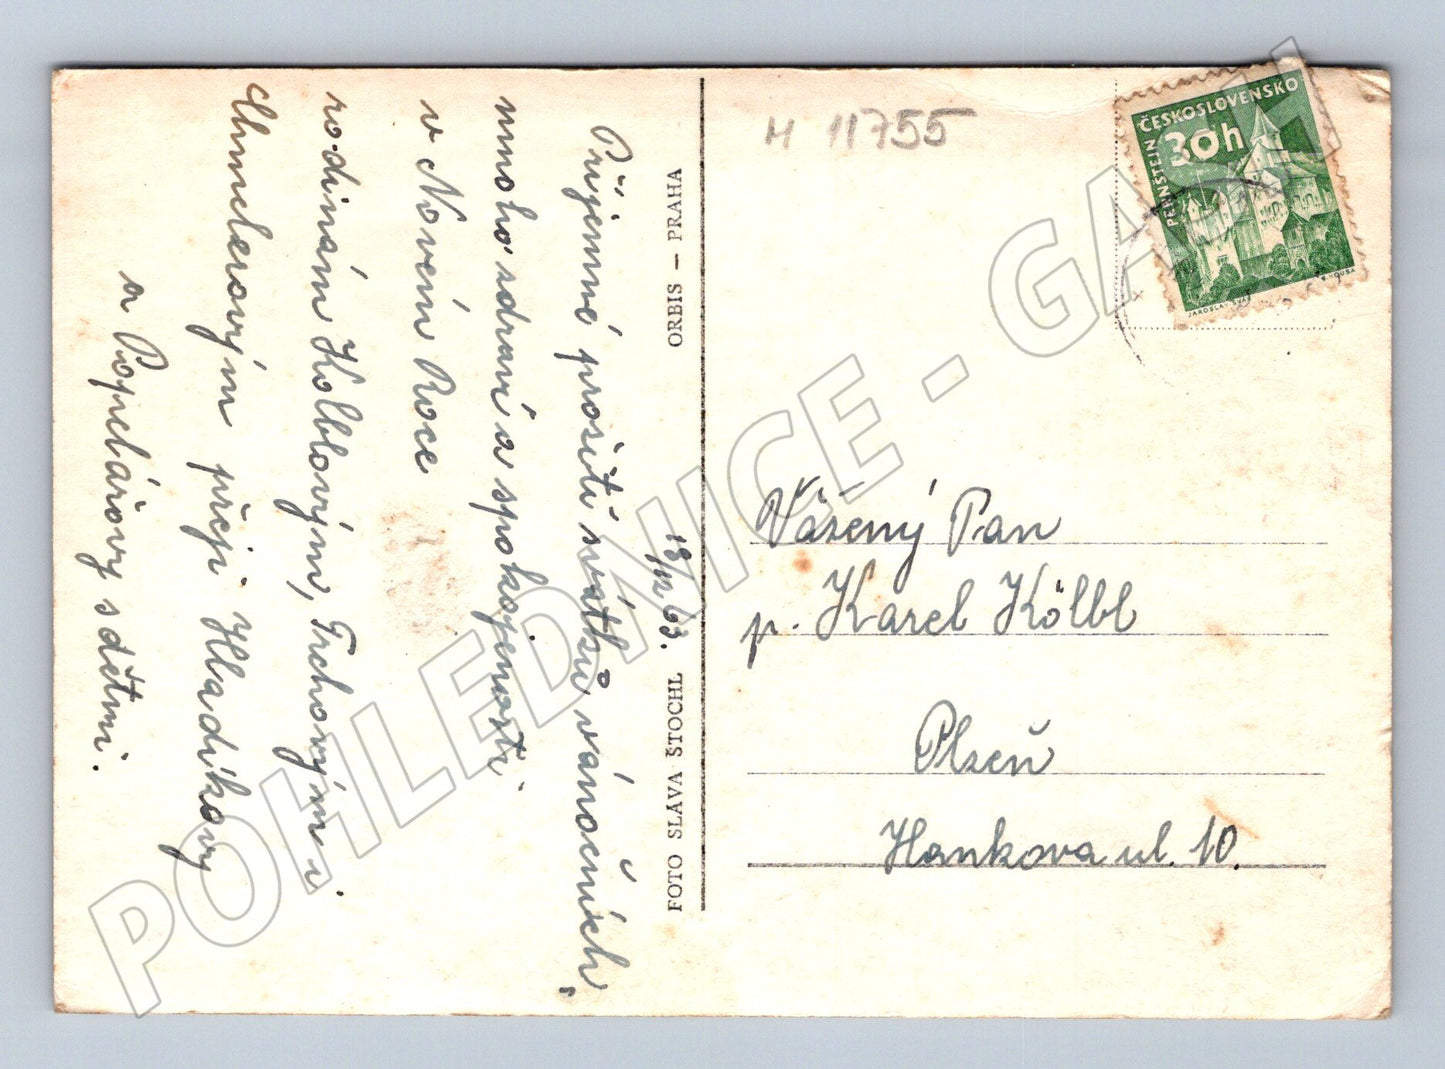 18/12 63.
Příjemné prožití svátků vánočních,
mnoho zdraví a spokojenosti
v Novém Roce
rodinám Kölblovým, Trchovým i
přejí Hladíkovy
a Popelářovy s dětmi.
FOTO SLÁVA ŠTOCHL ORBIS – PRAHA
H 11755
ČESKOSLOVENSKO
PERNŠTEJN
30h
JAROSLAV
Vážený Pan
p. Karel Kölbl
Plzeň
Hankova ul. 10.
POHLEDNICE - GA